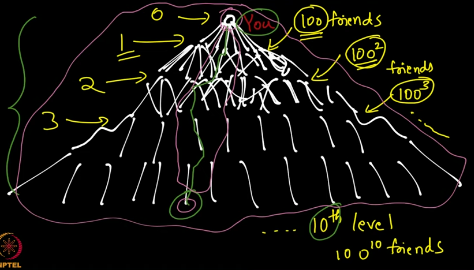 0
You
100 friends
1
100²
2
friends
100³
3
.... 10th level
100¹⁰ friends
NPTEL